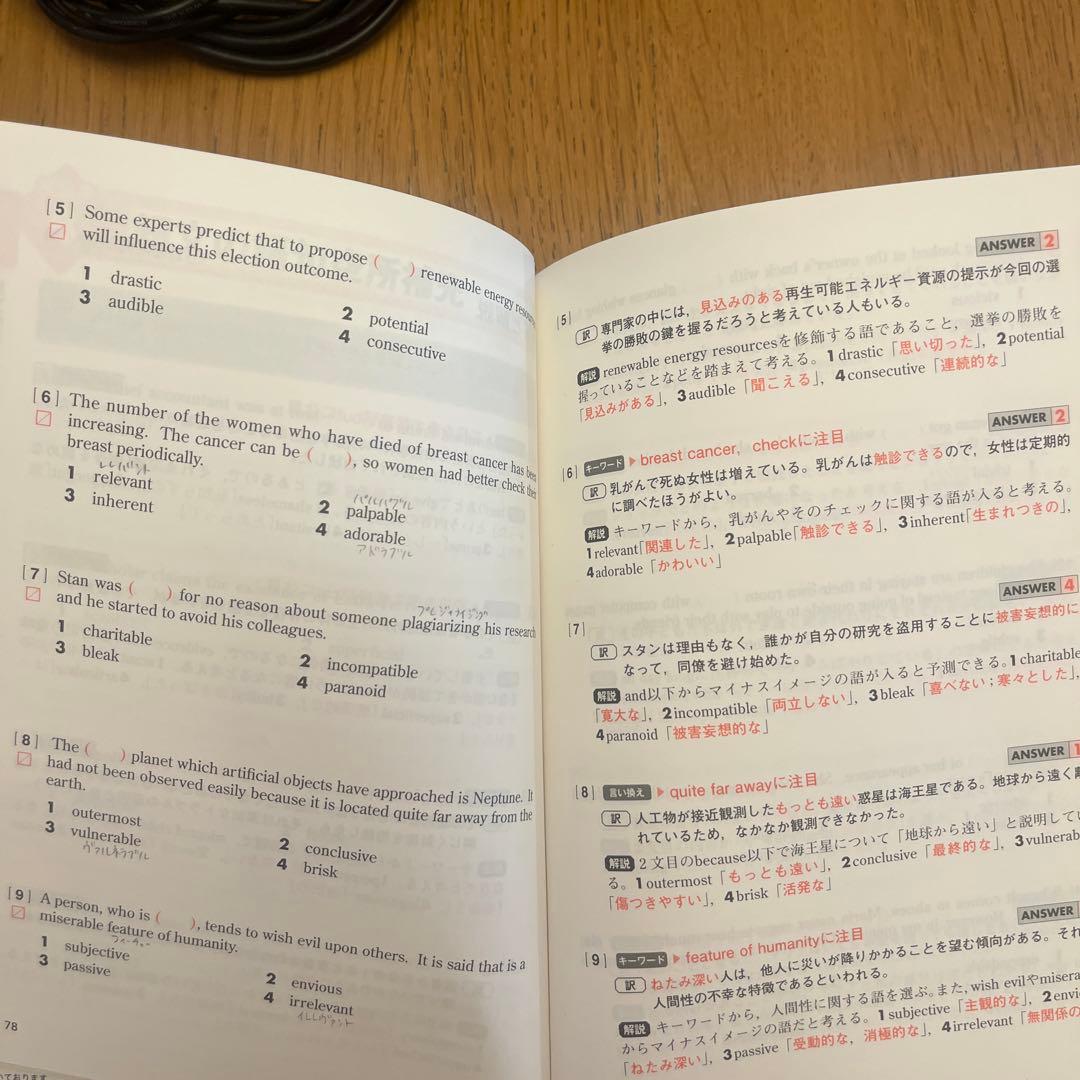 [5] Some experts predict that to propose (　　) renewable energy
will influence this election outcome.
1 drastic
2 potential
3 audible
4 consecutive
[6] The number of the women who have died of breast cancer has been
increasing. The cancer can be (　　), so women had better check their
breast periodically.
レレバント
1 relevant
パルパブル
2 palpable
3 inherent
4 adorable
アドラブル
[7] Stan was (　　) for no reason about someone plagiarizing his research
プレジャライジング
and he started to avoid his colleagues.
1 charitable
2 incompatible
3 bleak
4 paranoid
[8] The (　　) planet which artificial objects have approached is Neptune. It
had not been observed easily because it is located quite far away from the
earth.
1 outermost
2 conclusive
3 vulnerable
ヴァルネラブル
4 brisk
[9] A person, who is (　　), tends to wish evil upon others. It is said that is a
miserable feature of humanity.
フィーチャー
1 subjective
2 envious
3 passive
4 irrelevant
イレレヴァント
78
いております
ANSWER 2
[5]
訳 専門家の中には，見込みのある再生可能エネルギー資源の提示が今回の選
挙の勝敗の鍵を握るだろうと考えている人もいる。
解説 renewable energy resourcesを修飾する語であること，選挙の勝敗を
握っていることなどを踏まえて考える。1 drastic「思い切った」，2 potential
「見込みがある」，3 audible「聞こえる」，4 consecutive「連続的な」
ANSWER 2
[6] キーワード ▶ breast cancer, checkに注目
訳 乳がんで死ぬ女性は増えている。乳がんは触診できるので，女性は定期的
に調べたほうがよい。
解説 キーワードから，乳がんやそのチェックに関する語が入ると考える。
1 relevant「関連した」，2 palpable「触診できる」，3 inherent「生まれつきの」，
4 adorable「かわいい」
ANSWER 4
[7]
訳 スタンは理由もなく，誰かが自分の研究を盗用することに被害妄想的に
なって，同僚を避け始めた。
解説 and以下からマイナスイメージの語が入ると予測できる。1 charitable
「寛大な」，2 incompatible「両立しない」，3 bleak「喜べない；寒々とした」，
4 paranoid「被害妄想的な」
ANSWER 1
[8] 言い換え ▶ quite far awayに注目
訳 人工物が接近観測したもっとも遠い惑星は海王星である。地球から遠く離
れているため，なかなか観測できなかった。
解説 2文目のbecause以下で海王星について「地球から遠い」と説明してい
る。1 outermost「もっとも遠い」，2 conclusive「最終的な」，3
「傷つきやすい」，4 brisk「活発な」
ANSWER
[9] キーワード ▶ feature of humanityに注目
訳 ねたみ深い人は，他人に災いが降りかかることを望む傾向がある。それ
人間性の不幸な特徴であるといわれる。
解説 キーワードから，人間性に関する語を選ぶ。また，wish evilや
からマイナスイメージの語だと考える。1 subjective「主観的な」，2
「ねたみ深い」，3 passive「受動的な，消極的な」，4 irrelevant「無関係の